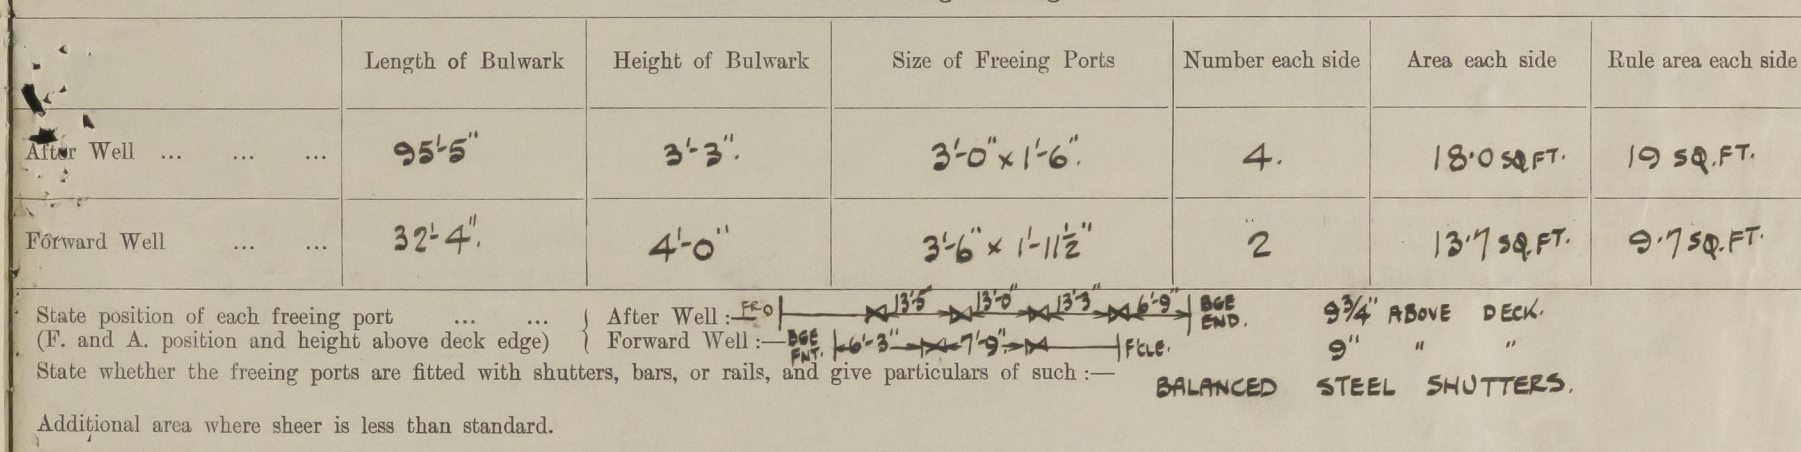 Length of Bulwark Height of Bulwark Size of Freeing Ports Number each side Area each side Rule area each side
After Well ... ... ... 95'-5" 3'-3". 3'-0" x 1'-6". 4. 18·0 SQ.FT. 19 SQ.FT.
Forward Well ... ... 32'-4". 4'-0" 3'-6" x 1'-11½" 2 13·7 SQ.FT. 9·7 SQ.FT.
State position of each freeing port ... ... After Well :— 13'-5" 13'-0" 13'-3" 6'-9" BGE END. 9¾" ABOVE DECK.
(F. and A. position and height above deck edge) Forward Well :— BGE FNT. 6'-3" 7'-9" F'CLE. 9" " "
State whether the freeing ports are fitted with shutters, bars, or rails, and give particulars of such :—
BALANCED STEEL SHUTTERS.
Additional area where sheer is less than standard.